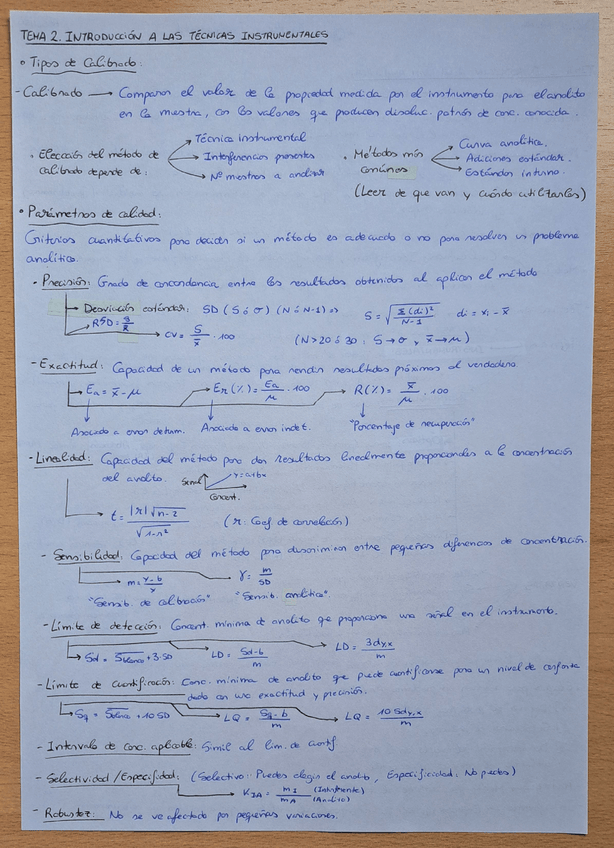 TEMA 2. INTRODUCCIÓN A LAS TÉCNICAS INSTRUMENTALES
• Tipos de Calibrado:
- Calibrado → Comparar el valor de la propiedad medida por el instrumento para el analito
en la muestra, con los valores que producen disoluc. patrón de conc. conocida.
• Elección del método de
calibrado depende de:
Técnica instrumental
Interferencias presentes
Nº muestras a analizar
• Métodos más
comunes
Curva analítica.
Adiciones estándar.
Estándar interno.
(Leer de que van y cuándo utilizarlos)
• Parámetros de calidad:
Criterios cuantitativos para decidir si un método es adecuado o no para resolver un problema
analítico.
• Precisión: Grado de concordancia entre los resultados obtenidos al aplicar el método
→ Desviación estándar: SD (S ó σ) (N ó N-1) ⇒ S = √(Σ(di)²/N-1) di = xi - x̄
→ RSD = S/x̄
→ CV = S/x̄ · 100 (N>20 ó 30: S→σ, x̄→μ)
- Exactitud: Capacidad de un método para rendir resultados próximos al verdadero
→ Ea = x̄ - μ → Er(%) = Ea/μ · 100 → R(%) = x̄/μ · 100
Asociado a error determ. Asociado a error indet. "Porcentaje de recuperación"
- Linealidad: Capacidad del método para dar resultados linealmente proporcionales a la concentración
del analito. Señal y=a+bx
Concent.
→ t = |r|√n-2 / √1-r² (r: Coef de correlación)
- Sensibilidad: Capacidad del método para discriminar entre pequeñas diferencias de concentración.
→ m = y-b/x → γ = m/SD
"Sensib. de calibración" "Sensib. analítica"
- Límite de detección: Concent. mínima de analito que proporciona una señal en el instrumento.
→ Sd = S̄blanco + 3·SD → LD = Sd-b/m → LD = 3dy,x/m
- Límite de cuantificación: Conc. mínima de analito que puede cuantificarse para un nivel de confianza
dado con una exactitud y precisión.
→ Sq = S̄blanc + 10 SD → LQ = Sq-b/m → LQ = 10 Sdy,x/m
- Intervalo de conc. aplicable: Simil al lim. de cuantf.
- Selectividad/Especifidad: (Selectivo: Puedes elegir el analito, Especificidad: No puedes)
→ KIA = mI/mA (Interferente)
(Analito)
- Robustez: No se ve afectado por pequeñas variaciones.